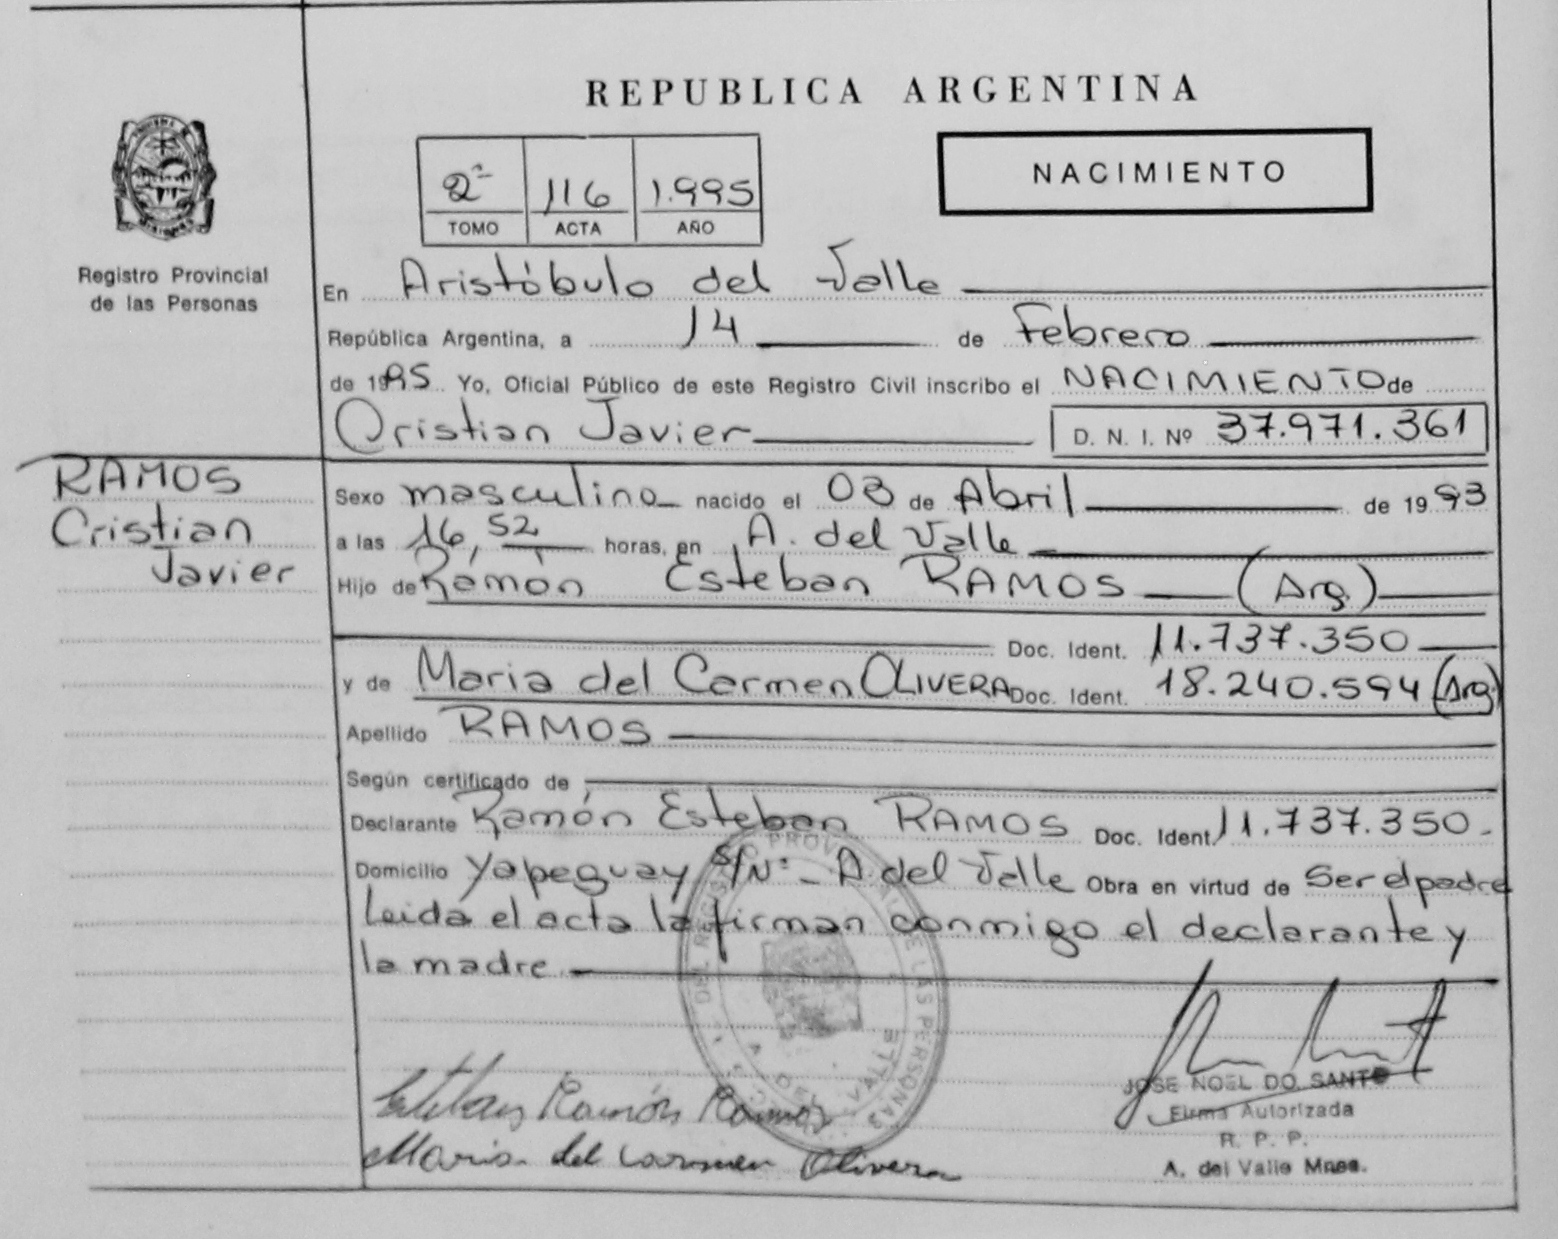 REPUBLICA ARGENTINA
NACIMIENTO
2º 116 1.995
TOMO ACTA AÑO
Registro Provincial
de las Personas
En Aristóbulo del Valle
República Argentina, a 14 de Febrero
de 1995 Yo, Oficial Público de este Registro Civil inscribo el NACIMIENTO de
Cristian Javier D. N. I. Nº 37.971.361
RAMOS
Cristian
Javier
Sexo masculino nacido el 03 de Abril de 1993
a las 16,52 horas, en A. del Valle
Hijo de Ramón Esteban RAMOS (Arg.)
Doc. Ident. 11.737.350
y de Maria del Carmen OLIVERA Doc. Ident. 18.240.594 (Arg)
Apellido RAMOS
Según certificado de
Declarante Ramón Esteban RAMOS Doc. Ident. 11.737.350.
Domicilio Yapeguay S/Nº - A del Valle Obra en virtud de Ser el padre
Leida el acta la firman conmigo el declarante y
la madre
Esteban Ramón Ramos
Maria del Carmen Olivera
JOSE NOEL DO SANTO
Firma Autorizada
R. P. P.
A. del Valle Mnes.